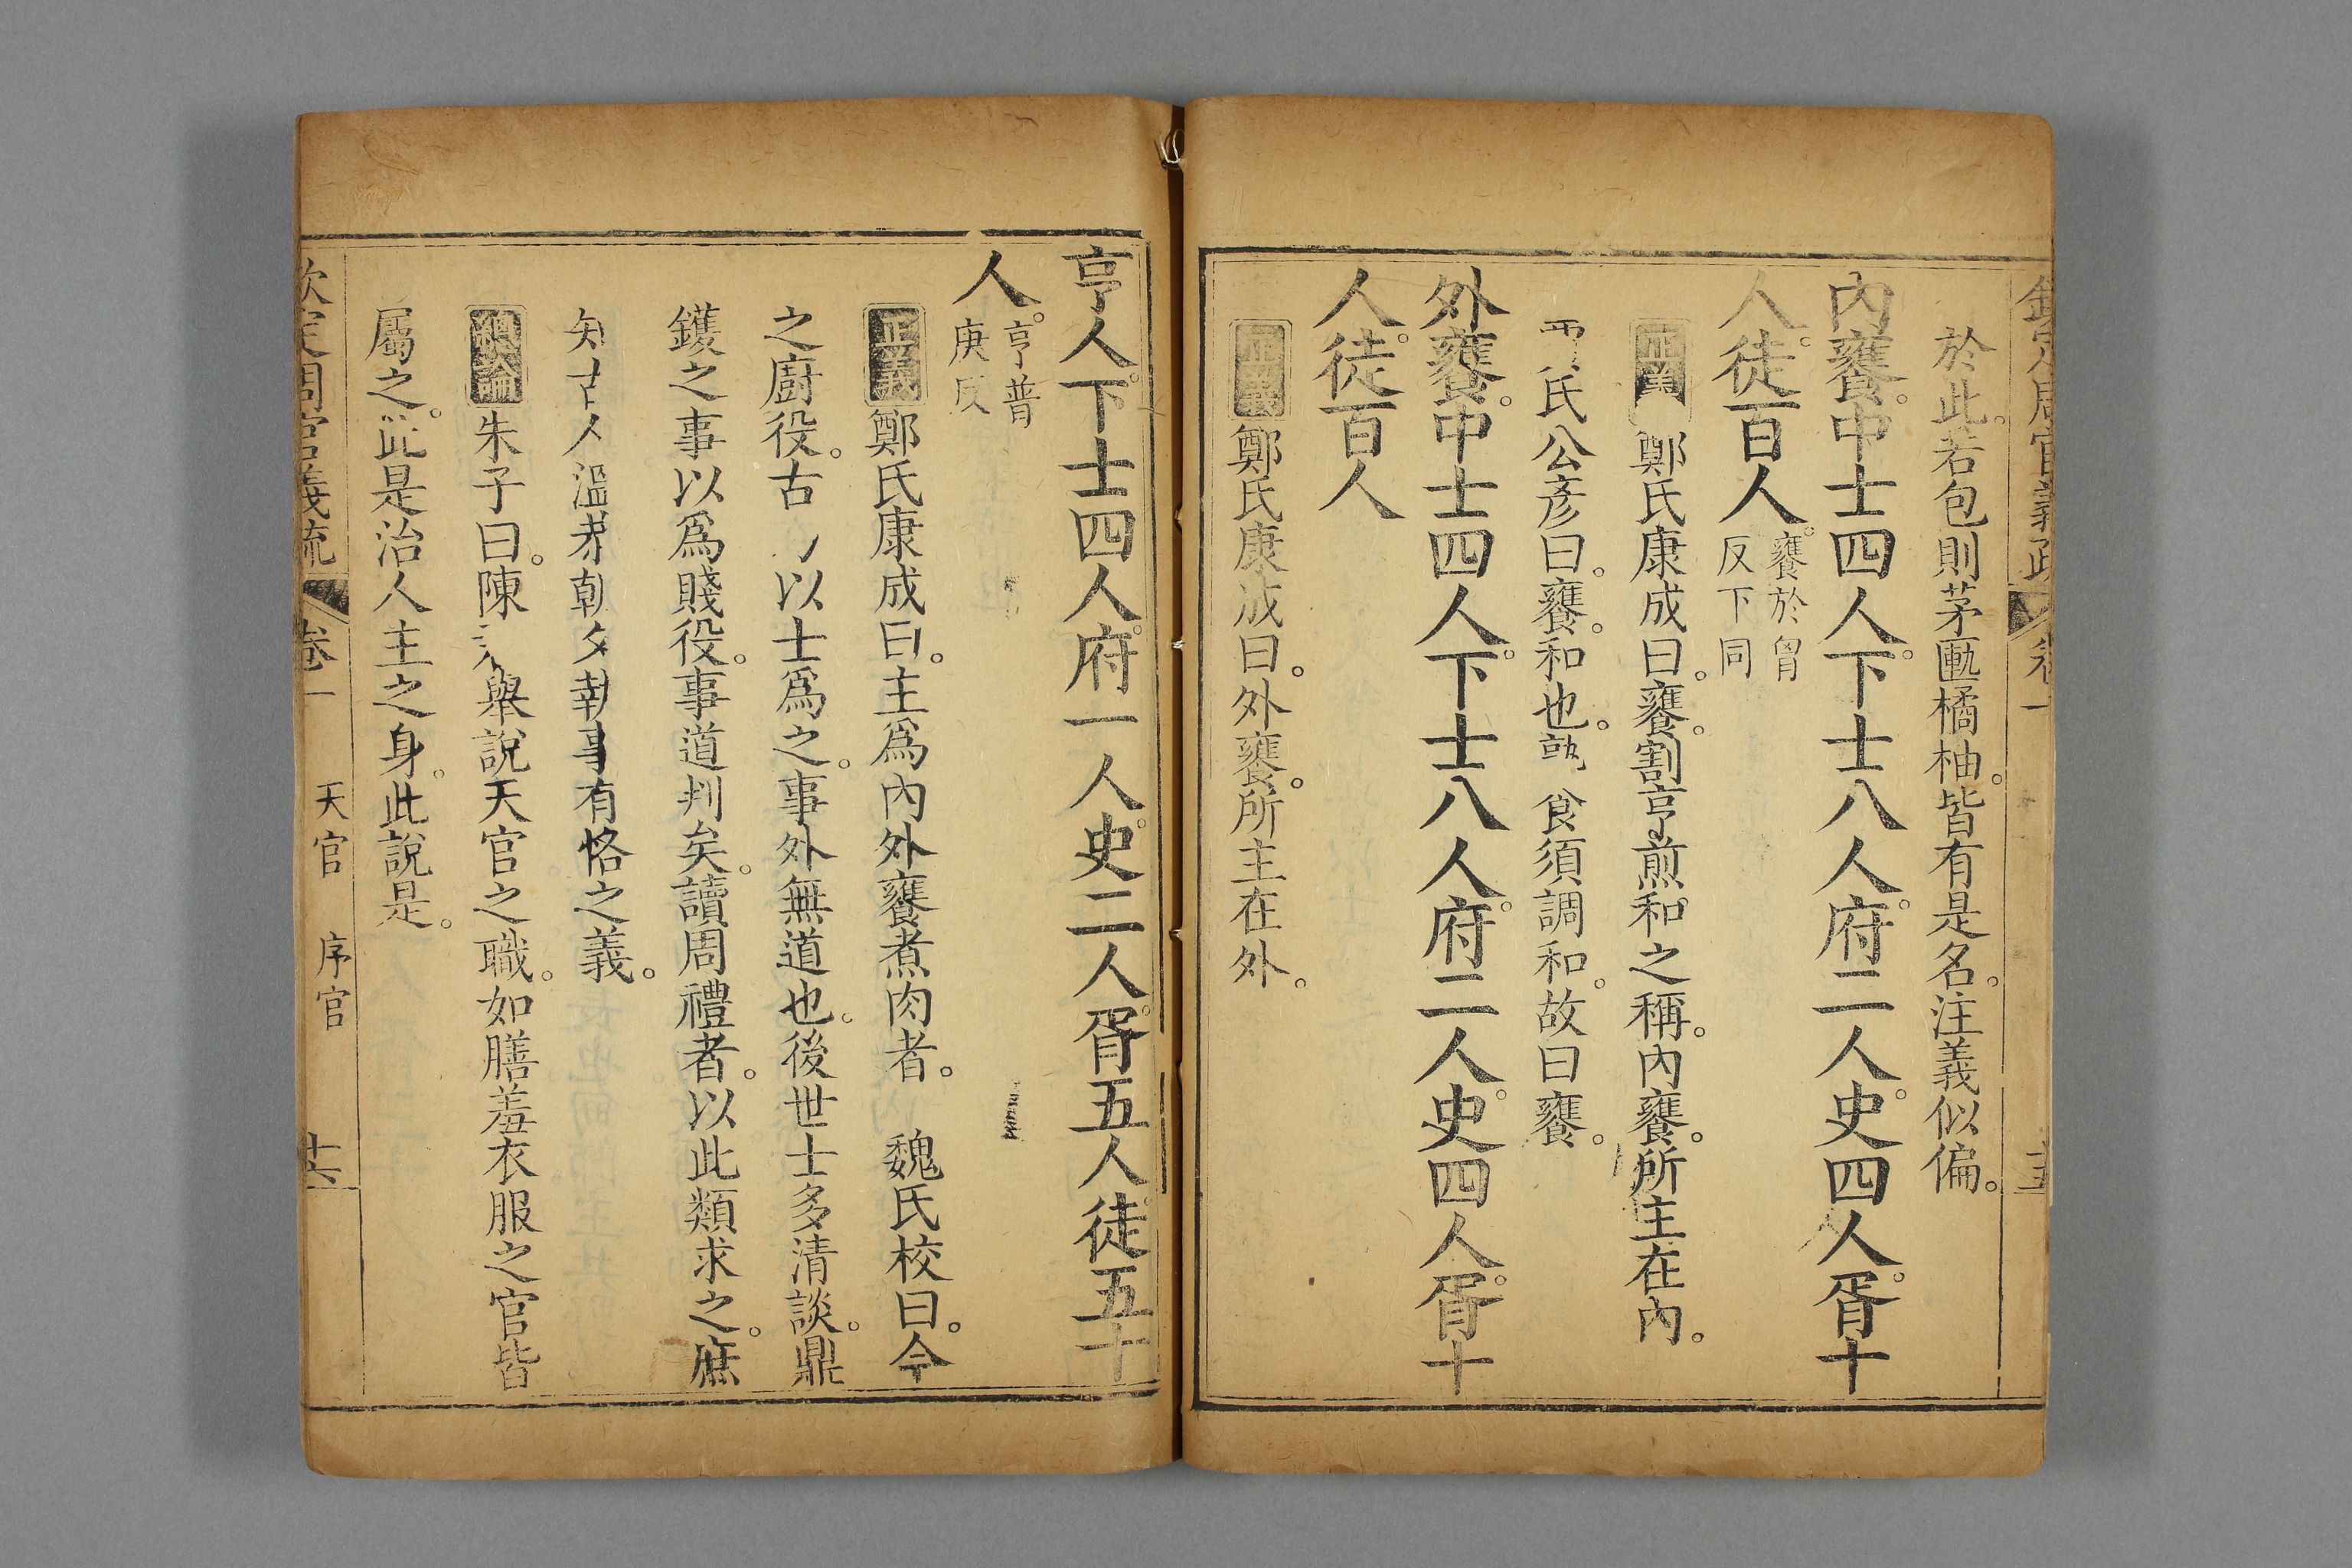 於此。若包則茅匭橘柚。皆有是名。注義似偏。
內饔。中士四人。下士八人。府二人。史四人。胥十
人。徒百人。饔於曾
反下同
正義 鄭氏康成曰。饔。割亨煎和之稱。內饔。所主在內。
氏公彥曰。饔。和也。食須調和。故曰饔。
外饔。中士四人。下士八人。府二人。史四人。胥十
人。徒百人
正義 鄭氏康成曰。外饔。所主在外。
亨人。下士四人。府一人。史二人。胥五人。徒五十
人。亨普
庚反
正義 鄭氏康成曰。主爲內外饔煮肉者。 魏氏校曰。今
之廚役。古 以士爲之。事外無道也。後世士多清談。鼎
鑊之事以爲賤役。事道判矣。讀周禮者。以此類求之。庶
知古人溫朝夕執事有恪之義。
總論 朱子曰。陳 舉說天官之職。如膳羞衣服之官皆
屬之。此是治人主之身。此說是。
欽定周官義疏 卷一 天官 序官 十六